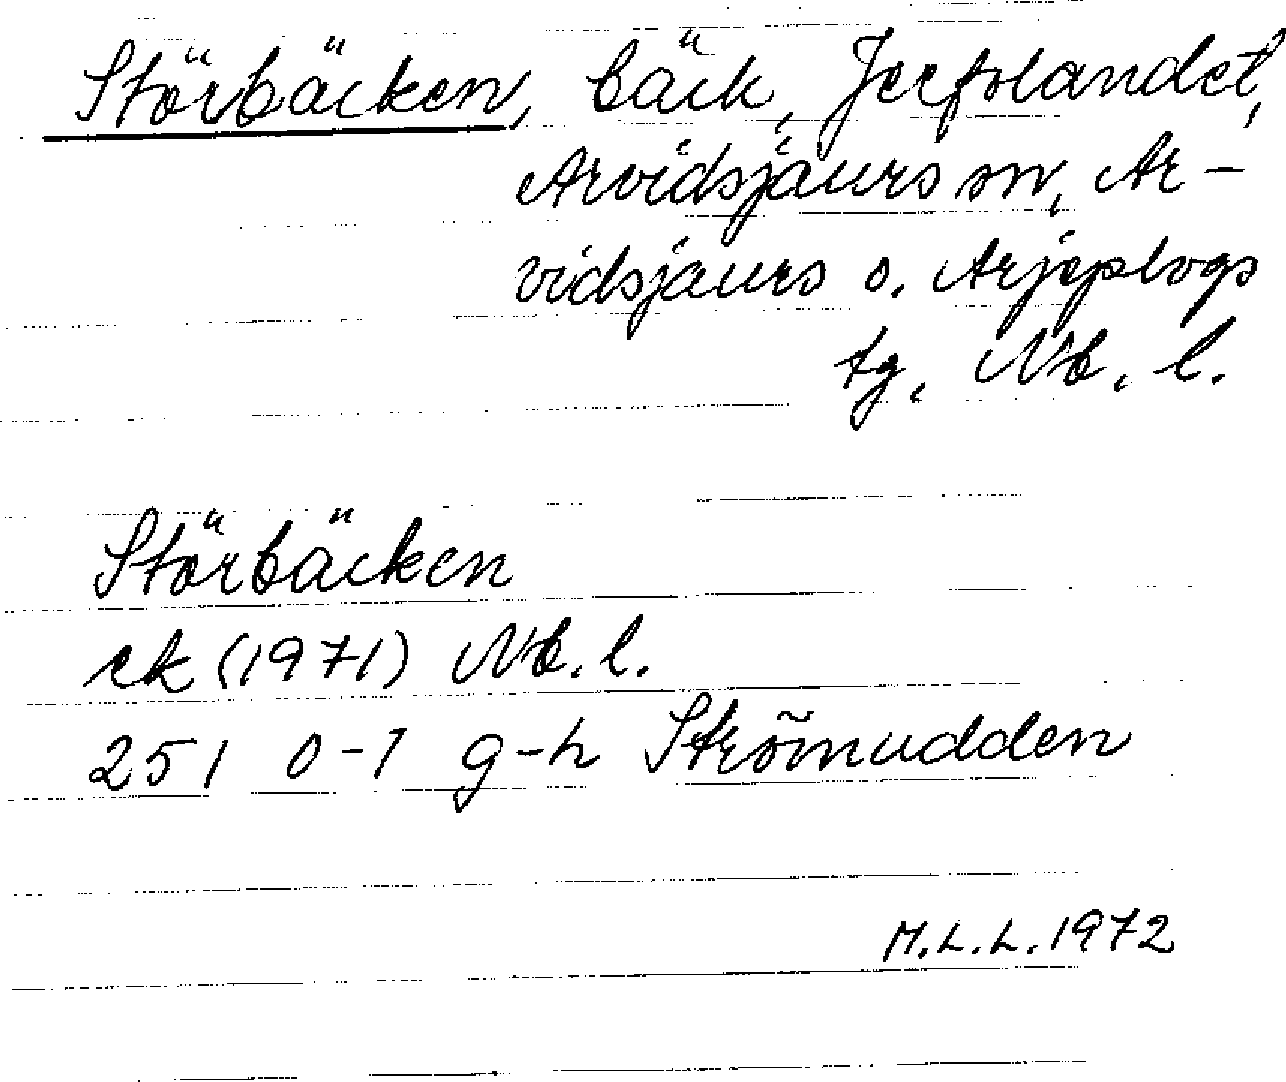 Störbäcken, bäck, Jerfolandet,
Arvidsjaurs sn, Ar-
vidsjaurs o. Arjeplogs
tg, Nb. l.
Störbäcken
ek (1971) Nb. l.
251 0-1 g-h Strömudden
M.L.L. 1972